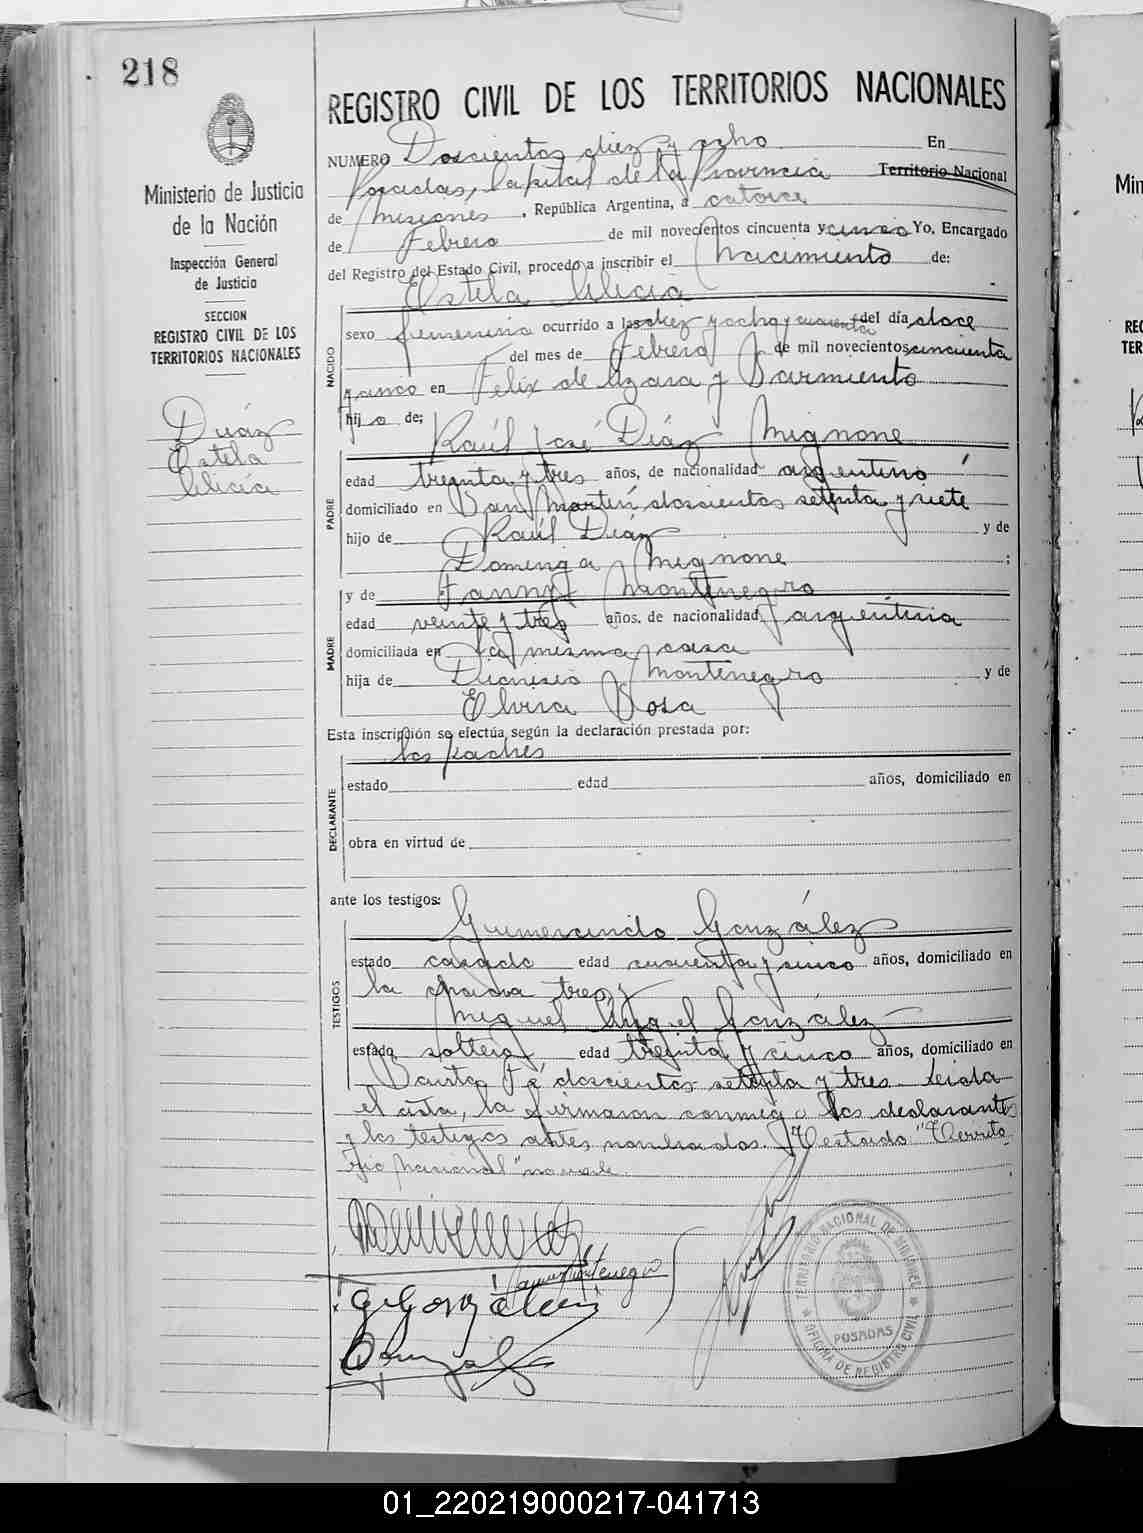 218
Ministerio de Justicia
de la Nación
Inspección General
de Justicia
SECCION
REGISTRO CIVIL DE LOS
TERRITORIOS NACIONALES
Díaz
Estela
Alicia
REGISTRO CIVIL DE LOS TERRITORIOS NACIONALES
NUMERO Doscientos diez y ocho En
Posadas, Capital de la Provincia Territorio Nacional
de Misiones, República Argentina, a catorce
de Febrero de mil novecientos cincuenta y cinco Yo, Encargado
del Registro del Estado Civil, procedo a inscribir el Nacimiento de:
Estela Alicia
NACIDO
sexo femenino ocurrido a las diez y ocho y cuarenta del día doce
del mes de Febrero de mil novecientos cincuenta
y cinco en Felix de Azara y Sarmiento
hija de:
Raúl José Díaz Mignone
PADRE
edad treinta y tres años, de nacionalidad argentino
domiciliado en San Martín doscientos setenta y siete
hijo de Raúl Díaz y de
Dominga Mignone ;
y de Fanny Montenegro
MADRE
edad veinte y tres años, de nacionalidad argentina
domiciliada en la misma casa
hija de Dionisio Montenegro y de
Elvira Sosa
Esta inscripción se efectúa según la declaración prestada por:
los padres
DECLARANTE
estado edad años, domiciliado en
obra en virtud de
ante los testigos:
Gumersindo González
TESTIGOS
estado casado edad cuarenta y cinco años, domiciliado en
la chacra tres y
Miguel Angel González
estado soltero edad treinta y cinco años, domiciliado en
Santa Fé doscientos setenta y tres. Leida
el acta, la firmaron conmigo los declarantes
y los testigos antes nombrados. Testado "Territo
rio Nacional" no vale.
Montenegro
TERRITORIO NACIONAL DE MISIONES
POSADAS
OFICINA DE REGISTRO CIVIL
Min
REG
TER
01_220219000217-041713